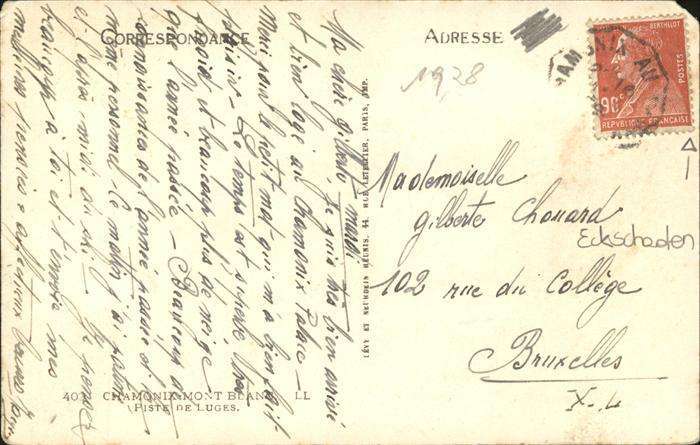 CORRESPONDANCE
ADRESSE
1928
BERTHELOT
POSTES
90c
REPVBLIQVE FRANÇAISE
CHAMONIX
Mademoiselle
Gilberte Chouard
Eckschaden
102 rue du Collège
Bruxelles
X.L
LÉVY ET NEURDEIN RÉUNIS, 44, RUE LETELLIER, PARIS, IMP.
mardi
Ma chère Gilberte, Je suis très bien arrivée
et bien logée au Chamonix Palace -
Merci pour le petit mot qui m'a bien fait
plaisir - Le temps est superbe très
froid et beaucoup plus de neige
que l'année passée - Beaucoup de
connaissances de l'année passée et
mon personnel - le matin j'ai patiné
et l'après midi du ski - Je pense
beaucoup à toi et t'envoie mes
meilleures pensées affectueux baisers
CHAMONIX-MONT BLANC. LL
PISTE DE LUGES.